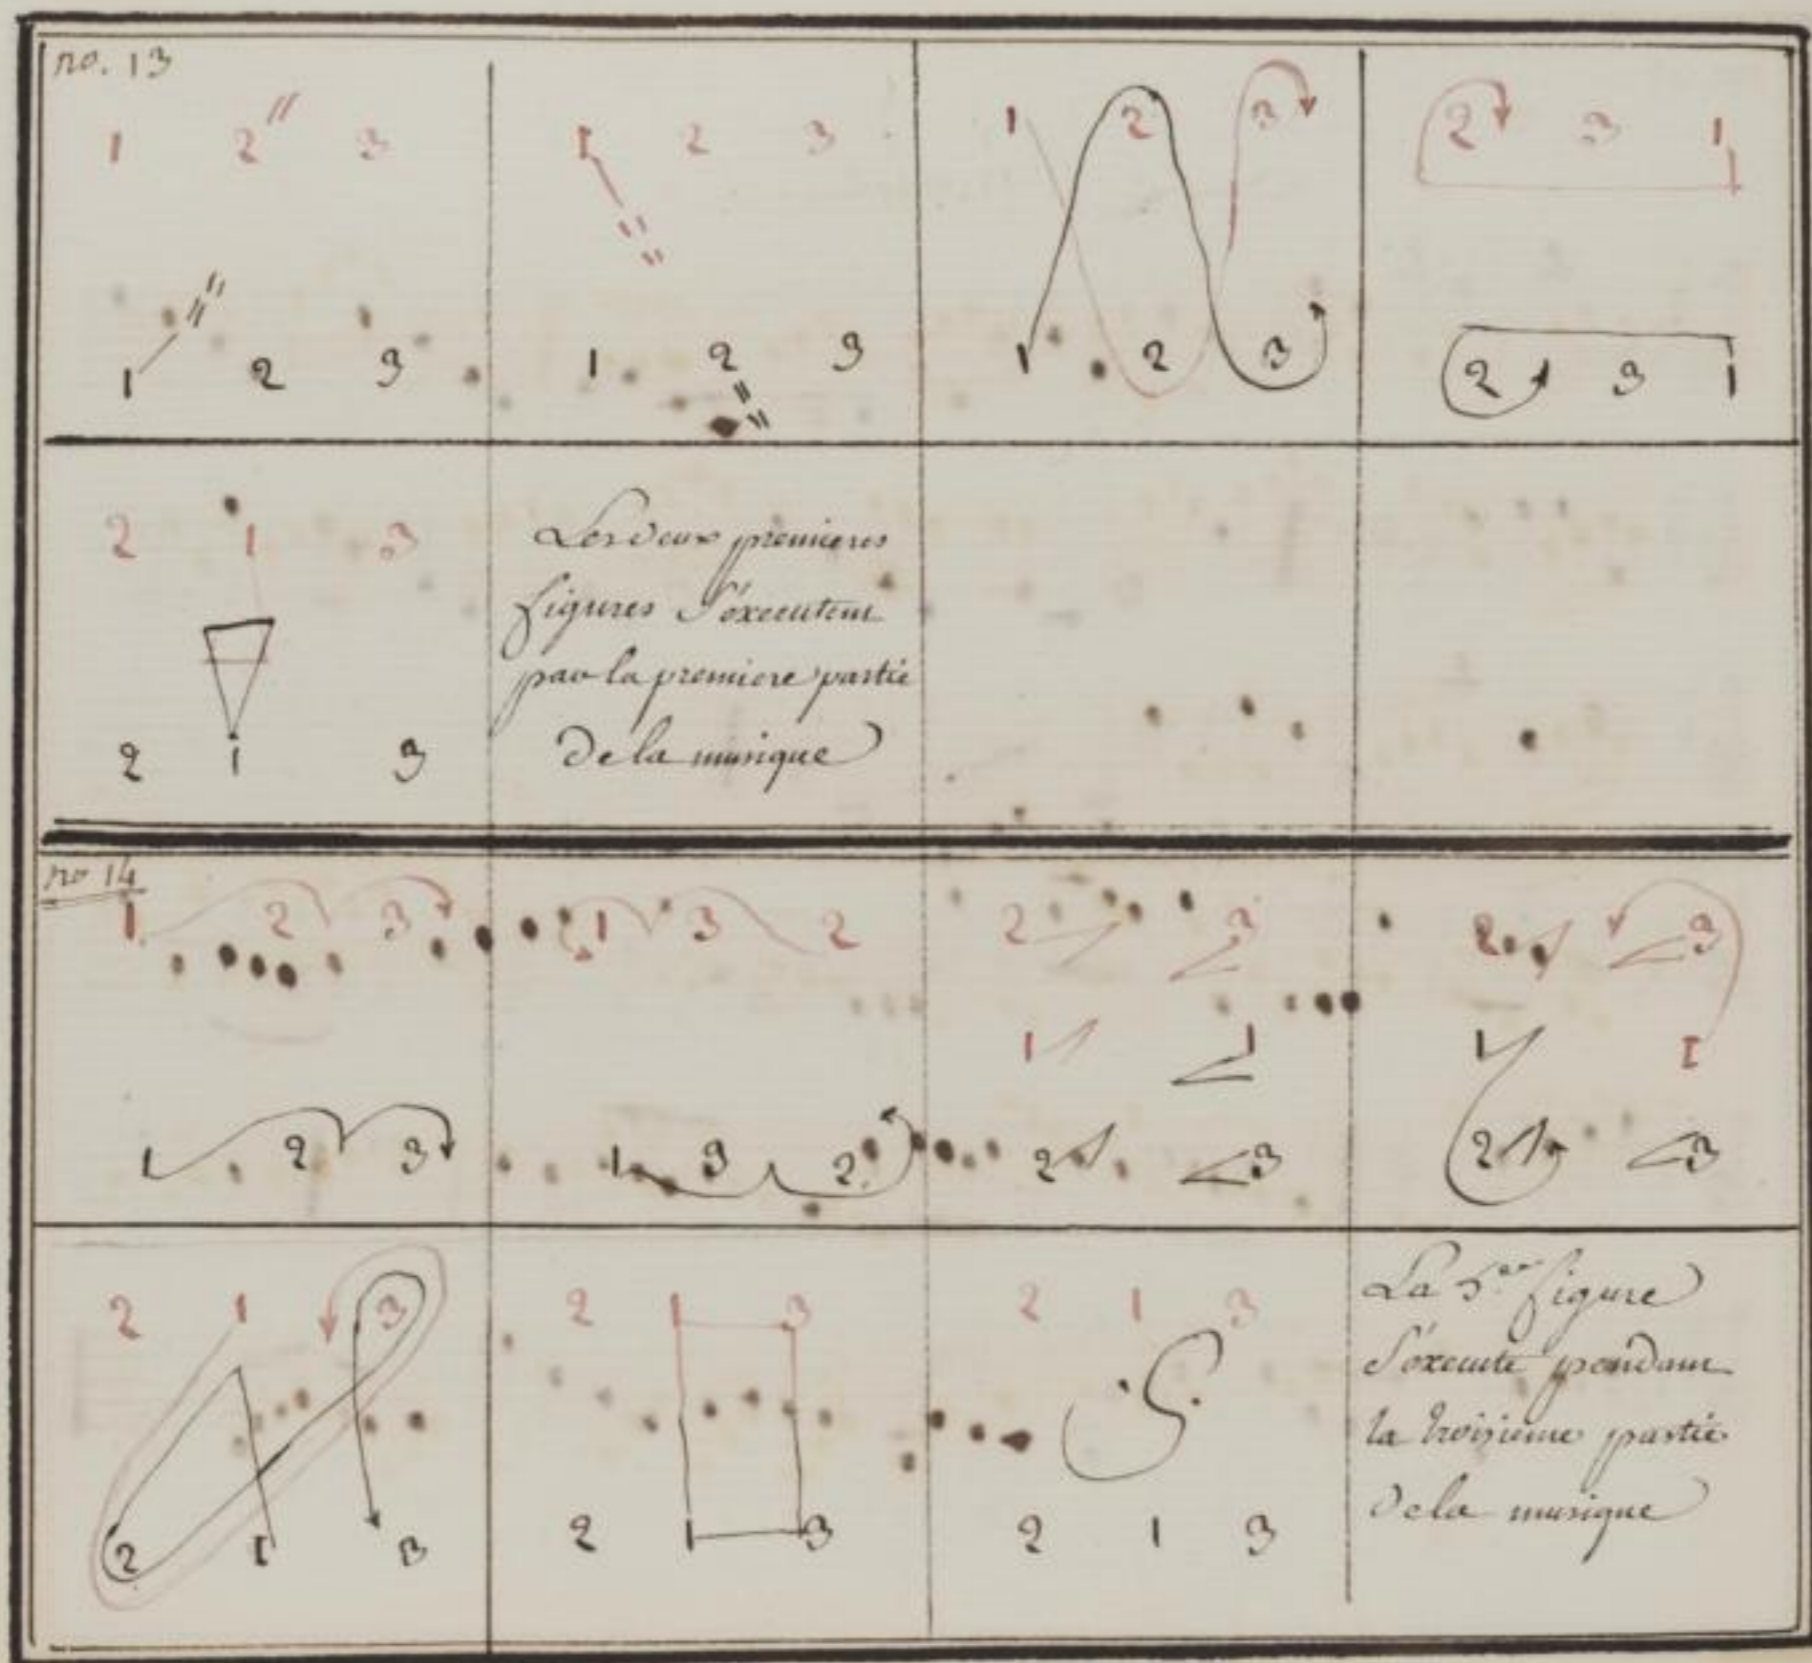 no. 13
1 2 3
1 2 3
1 2 3
1 2 3
1 2 3
1 2 3
2 3 1
2 3 1
2 1 3
2 1 3
Les deux premieres
figures s'éxecutent
par la premiere partie
de la musique
no 14
1. 2 3
1 2 3
1 3 2
1 3 2
2 3
1 1
2 3
2 3
1 1
2 3
2 1 3
2 1 3
2 1 3
2 1 3
2 1 3
2 1 3
La 5.me figure
s'éxecute pendant
la troisieme partie
de la musique